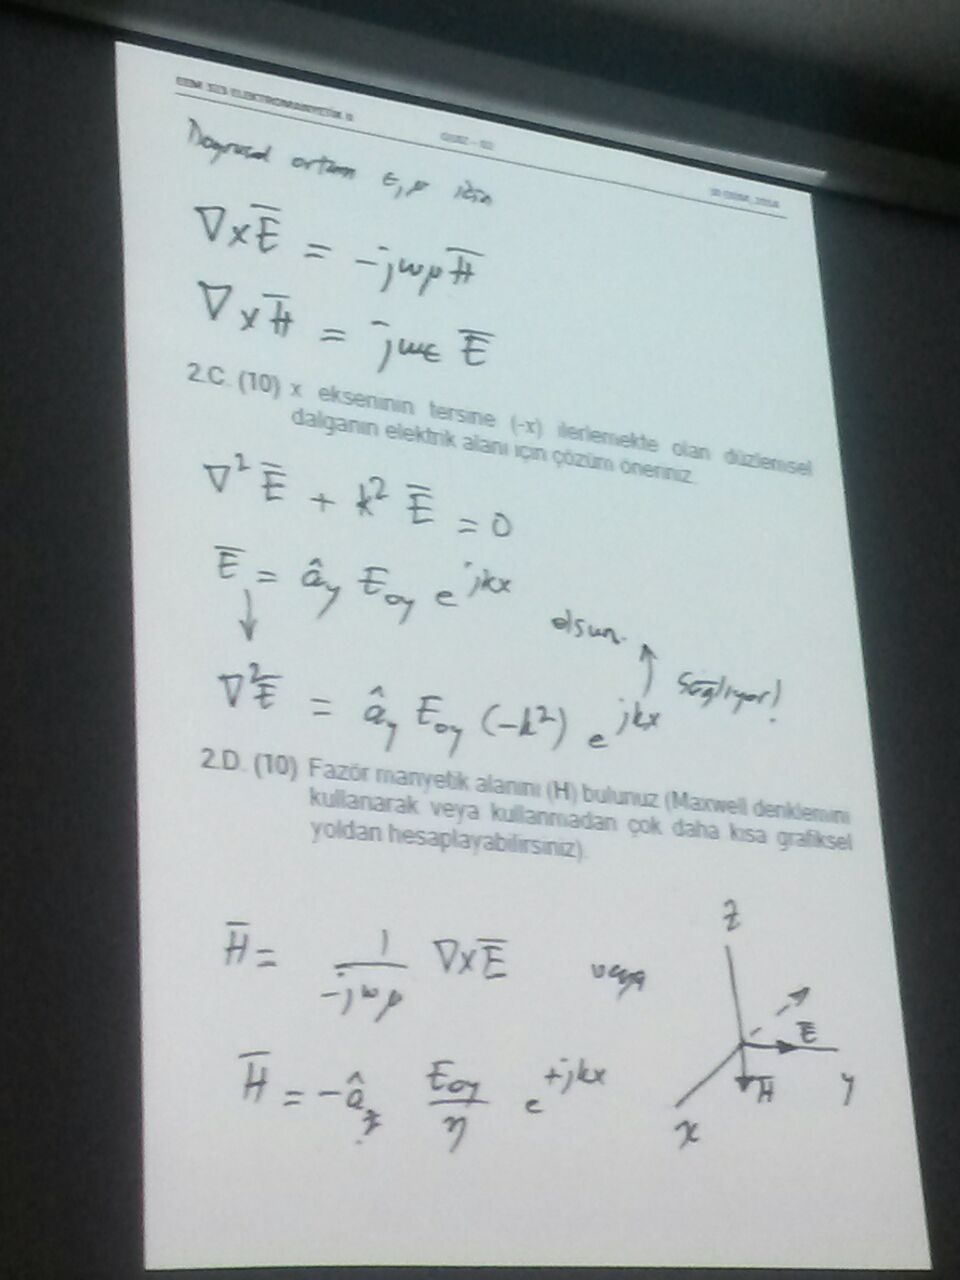 EEM 323 ELEKTROMANYETİK II QUIZ - 02 2014
Doğrusal ortam ε, μ için
∇×E̅ = -jωμH̅
∇×H̅ = jωε E̅
2.C. (10) x ekseninin tersine (-x) ilerlemekte olan düzlemsel
dalganın elektrik alanı için çözüm öneriniz.
∇² E̅ + k² E̅ = 0
E̅ = â_y E_oy e^{jkx} olsun.
∇²E̅ = â_y E_oy (-k²) e^{jkx} Sağlıyor!
2.D. (10) Fazör manyetik alanını (H) bulunuz (Maxwell denklemini
kullanarak veya kullanmadan çok daha kısa grafiksel
yoldan hesaplayabilirsiniz).
H̅ = 1/(-jωμ) ∇×E̅ veya
H̅ = -â_z E_oy/η e^{+jkx}
z
E̅
H̅
y
x